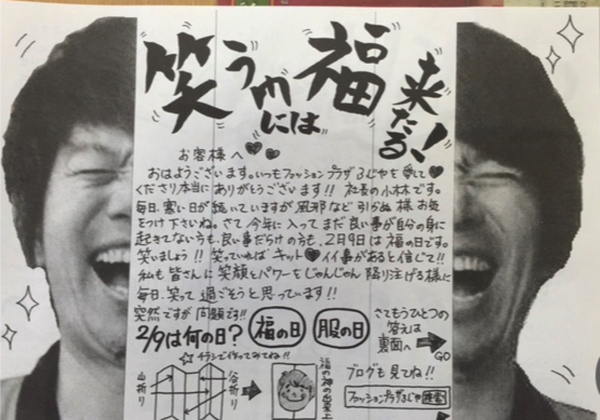 笑う門には福来たる!
お客様へ♥♥
おはようございます。いつもファッションプラザふじやを愛して♥
くださり本当にありがとうございます!!社長の小林です。
毎日、寒い日が続いていますが風邪など引かぬ様お気
をつけ下さいね。さて今年に入ってまだ良い事が自分の身に
起きてない方も、良い事だらけの方も、2月9日は福の日です。
笑いましょう!!笑っていればキット♥イイ事があると信じて!!
私も皆さんに笑顔とパワーをじゃんじゃん降り注げる様に
毎日、笑って過ごそうと思っています!!
突然ですが問題です!!
2/9は何の日?
福の日
服の日
さてもうひとつの
答えは
裏面へ
GO
☆チラシで作ってみてね!!
山折り
谷折り
福の神の出来上
ブログも見てね!!
ファッションプラザふじや 検索